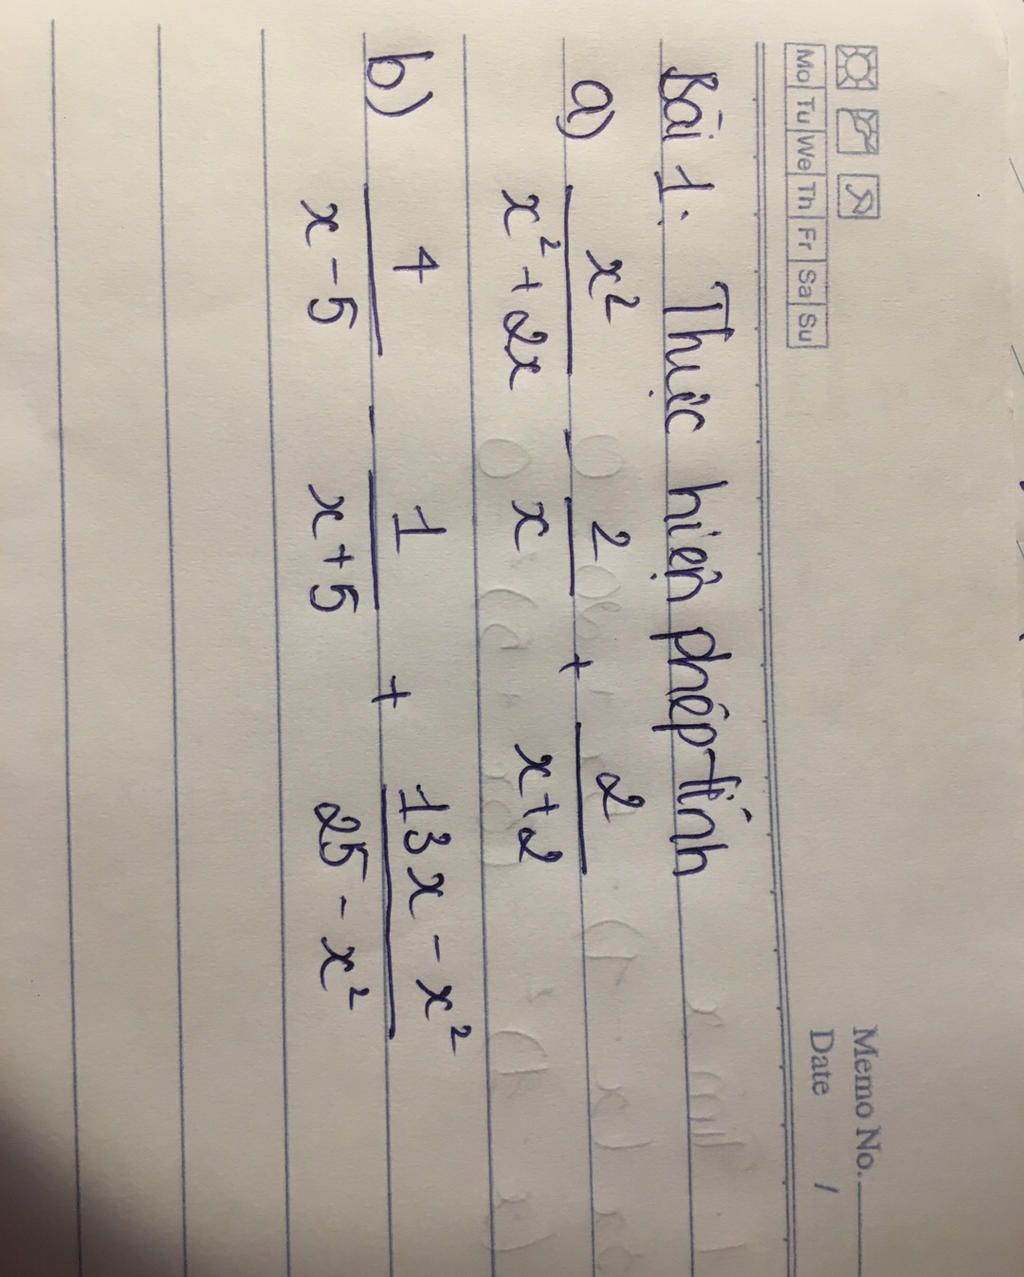 Memo No.
Mo Tu We Th Fr Sa Su Date /
Bài 1. Thực hiện phép tính
a) x²/(x²+2x) - 2/x + 2/(x+2)
b) 4/(x-5) - 1/(x+5) + (13x-x²)/(25-x²)